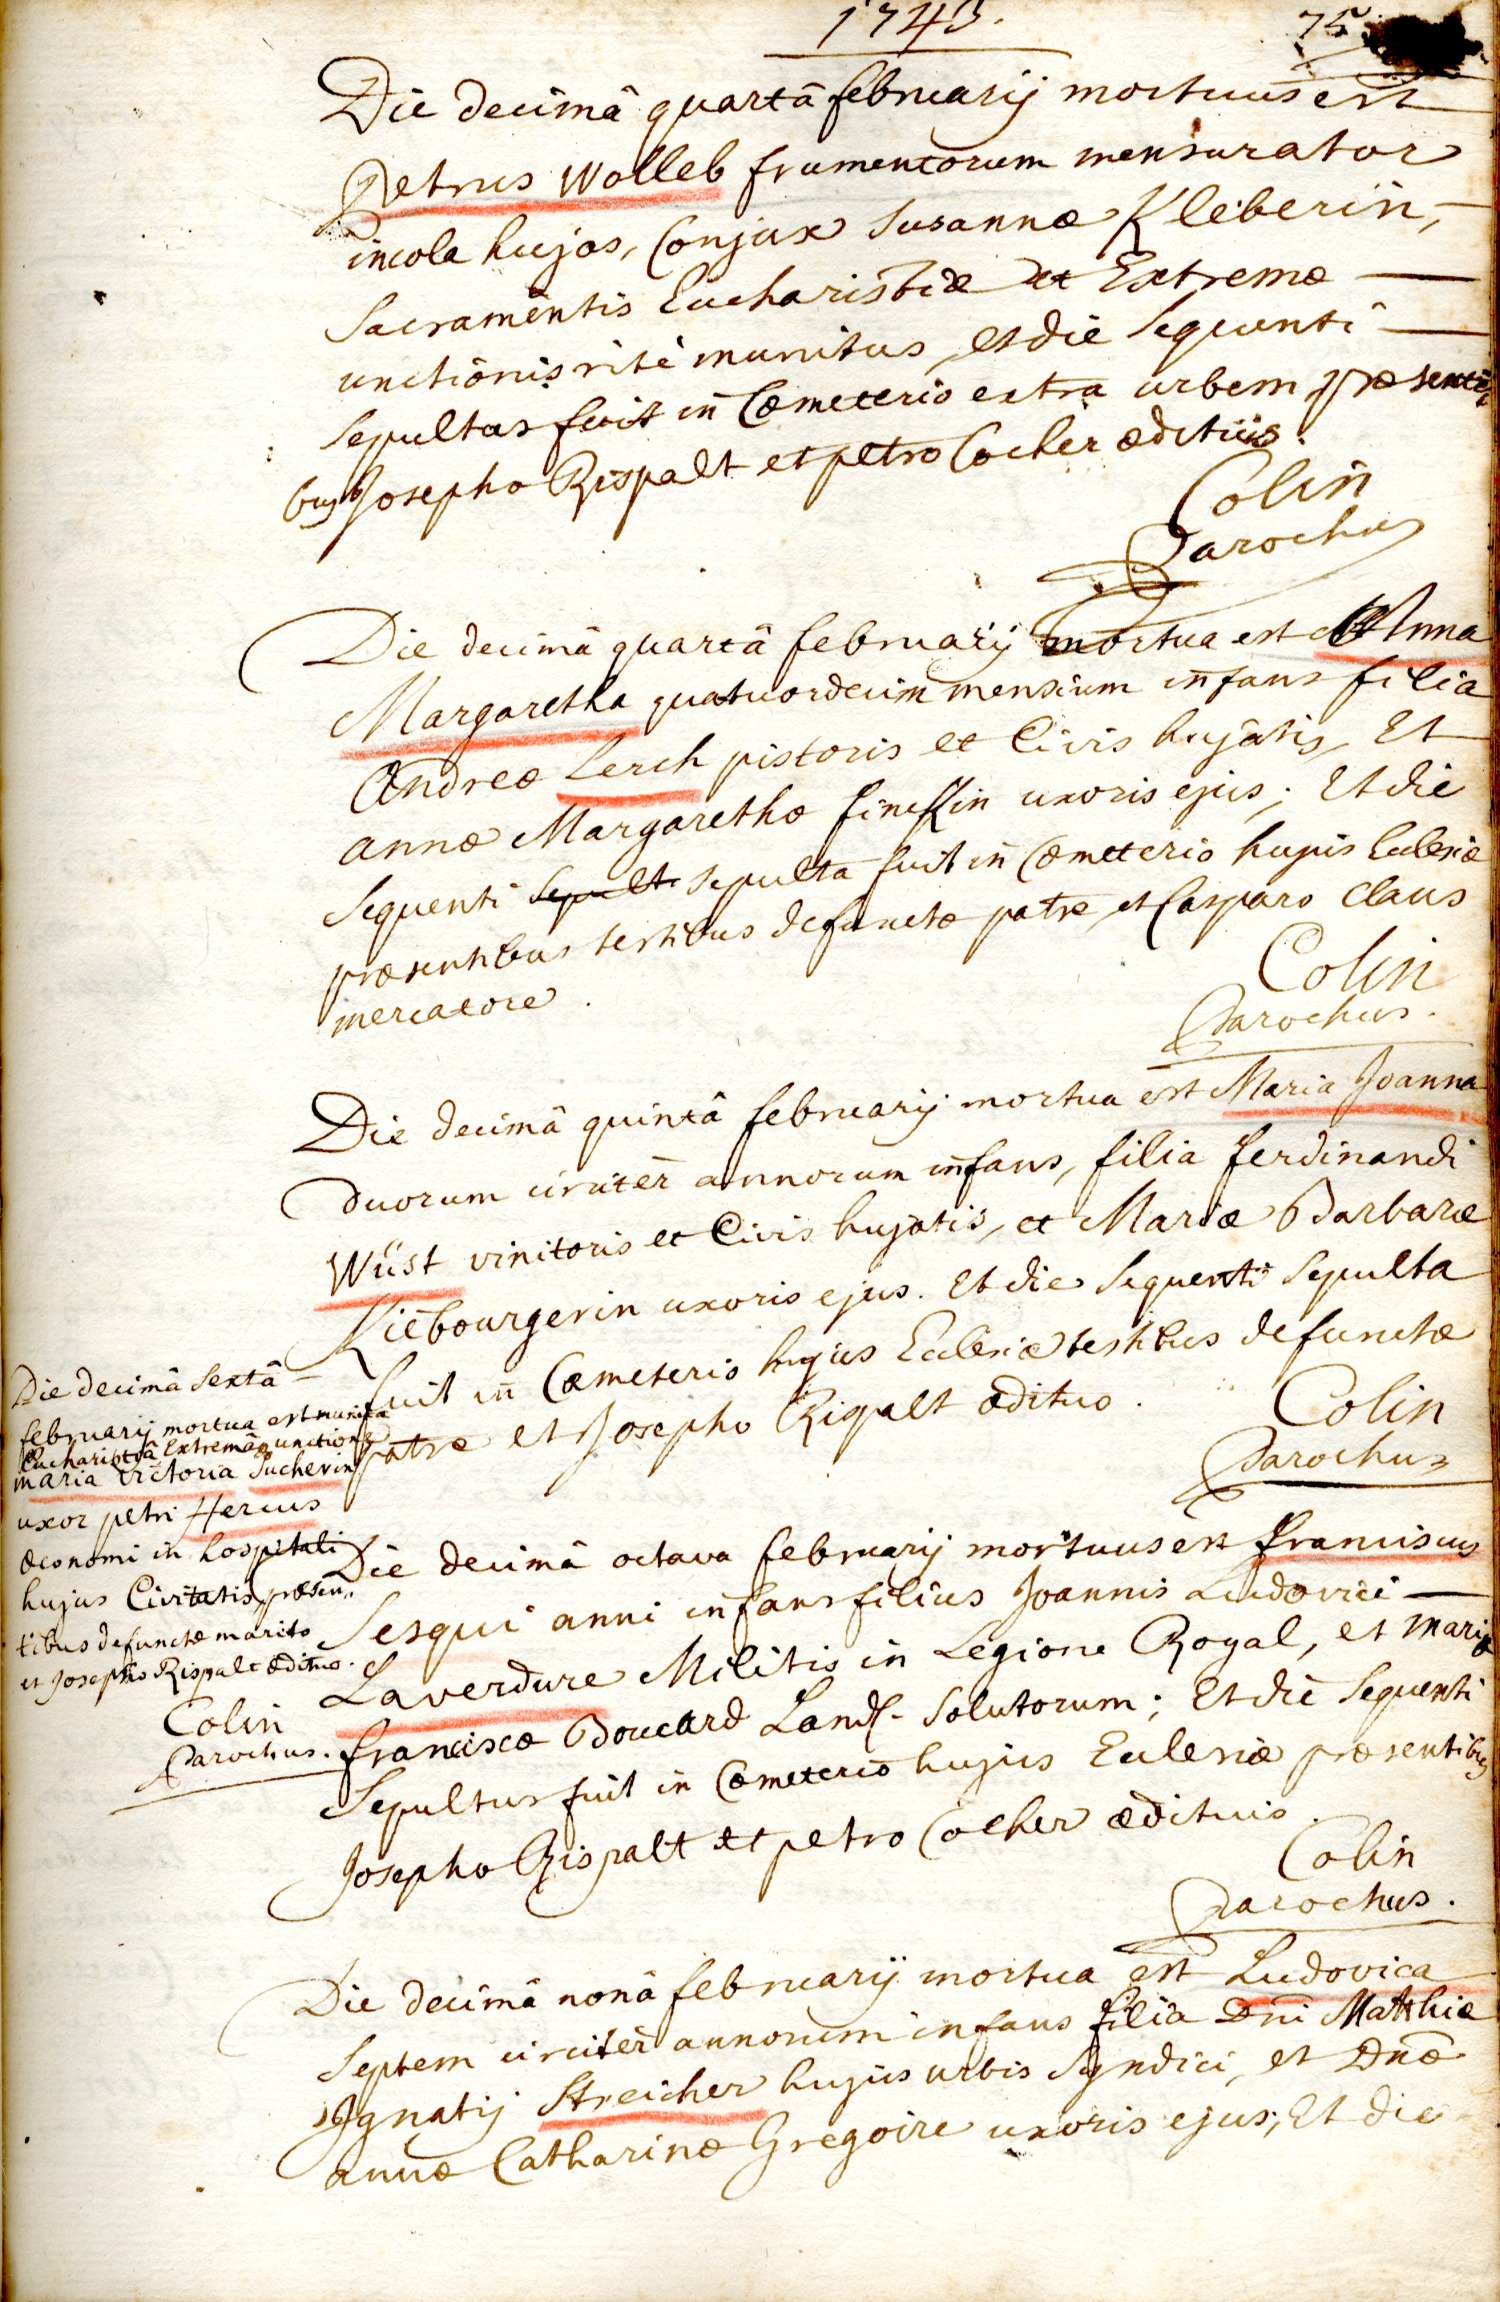 1743.
75
Die decimâ quartâ februarij mortuus est
Petrus Wolleb frumentorum mensurator
incola hujas, Conjux Susannæ Kleberin,
Sacramentis Eucharistiæ et Extremæ
unctionis ritè munitus, et die Sequenti
Sepultus fuit in Cœmeterio extra urbem præsenti
bus Josepho Rispalt et petro Cocher ædituis.
Colin
Parochus
Die decimâ quartâ februarij mortua est Anna
Margaretha quatuordecim mensium infans filia
Andreæ Lerch pistoris et Civis hujatis, Et
annæ Margarethæ finckin uxoris ejus; Et die
Sequenti Sepult Sepulta fuit in Cœmeterio hujus Eclesiæ
præsentibus testibus defunctæ patre, et Casparo Claus
mercatore.
Colin
Parochus.
Die decimâ quintâ februarij mortua est Maria Joanna
duorum circiter annorum infans, filia ferdinandi
Wüst vinitoris et Civis hujatis, et Mariæ Barbaræ
Kiebourgerin uxoris ejus. Et die Sequenti Sepulta
fuit in Cœmeterio hujus Eclesiæ testibus defunctæ
patre et Josepho Rispalt ædituo.
Colin
Parochus
Die decimâ Sextâ
februarij mortua est munita
Eucharistiâ Extremâq unctione
maria victoria Sucherin
uxor petri Hercus
œconomi in hospitali
hujus Civitatis, præsen„
tibus defunctæ marito
et Josepho Rispalt ædituo.
Colin
Parochus.
Die decimâ octava februarij mortuus est franciscus
Sesqui anni infans filius Joannis Ludovici
Laverdure Militis in Legione Royal, et Mariæ
franciscæ Boucard Solutorum; Et die Sequenti
Sepultus fuit in Cœmeterio hujus Eclesiæ præsentibus
Josepho Rispalt et petro Cocher ædituis.
Colin
Parochus.
Die decimâ nonâ februarij mortua est Ludovica
Septem circiter annorum infans filia Dni Matthiæ
Ignatij Streicher hujus urbis Syndici, et Dnæ
annæ Catharinæ Gregoire uxoris ejus; Et die